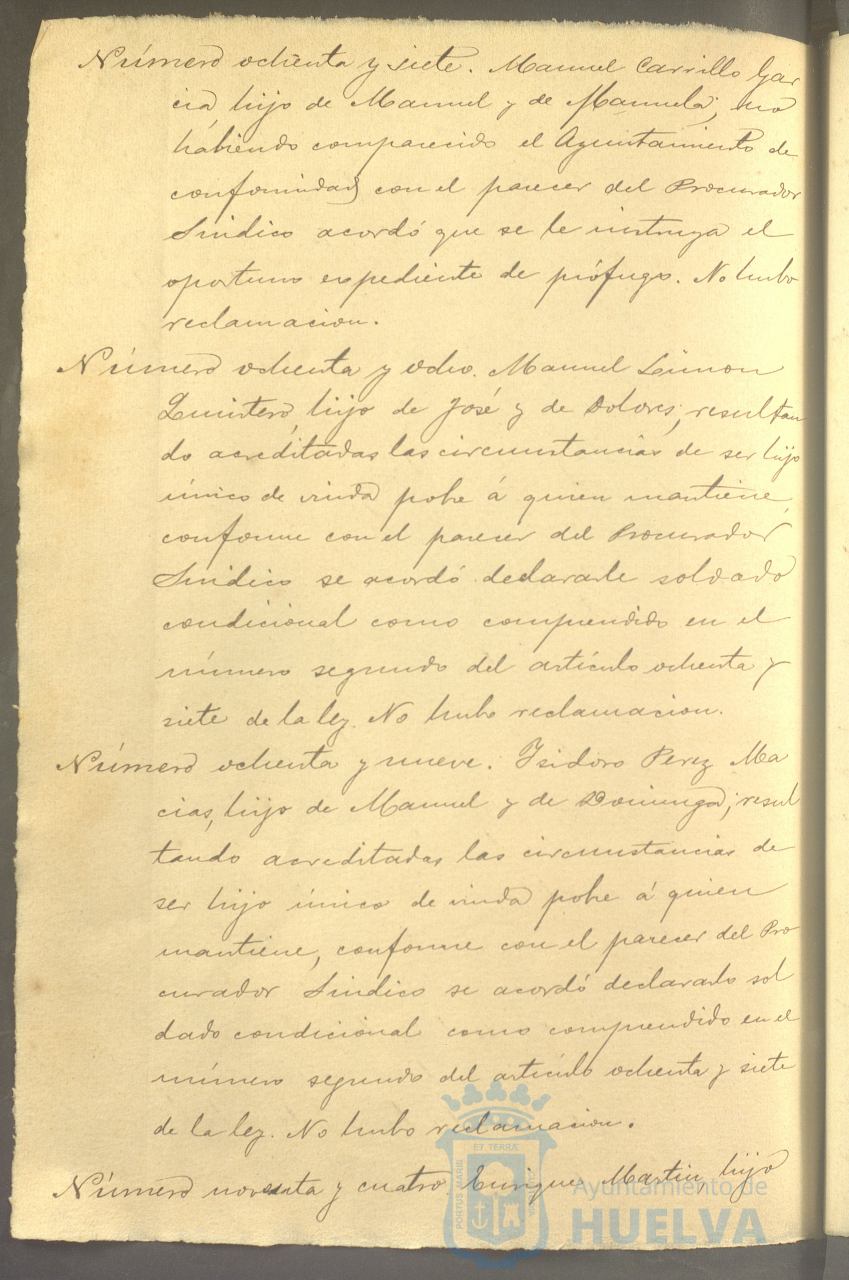 Número ochenta y siete. Manuel Carrillo Gar
cia, hijo de Manuel y de Manuela; no
habiendo comparecido el Ayuntamiento de
conformidad con el parecer del Procurador
Sindico acordó que se le instruya el
oportuno espediente de prófugo. No hubo
reclamacion.
Número ochenta y ocho. Manuel Limon
Quintero, hijo de José y de Dolores; resultan
do acreditadas las circunstancias de ser hijo
único de viuda pobre á quien mantiene,
conforme con el parecer del Procurador
Sindico se acordó declararle soldado
condicional como comprendido en el
número segundo del artículo ochenta y
siete de la ley. No hubo reclamacion.
Número ochenta y nueve. Isidoro Perez Ma
cias, hijo de Manuel y de Dominga; resul
tando acreditadas las circunstancias de
ser hijo único de viuda pobre á quien
mantiene, conforme con el parecer del Pro
curador Sindico se acordó declararlo sol
dado condicional como comprendido en el
número segundo del artículo ochenta y siete
de la ley. No hubo reclamacion.
Número noventa y cuatro, Enrique Martin, hijo
Ayuntamiento de
HUELVA
PORTUS MARIS
ET TERRÆ